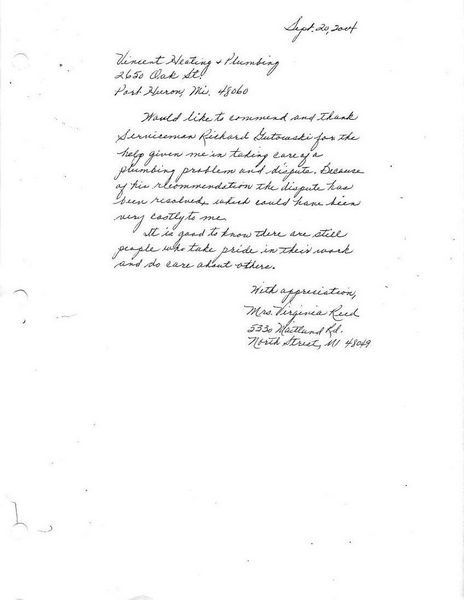 Sept. 20, 2004
Vincent Heating & Plumbing
2650 Oak St.
Port Huron, Mi. 48060
Would like to commend and thank
Serviceman Richard Gutowski for the
help given me in taking care of a
plumbing problem and dispute. Because
of his recommendation the dispute has
been resolved, which could have been
very costly to me.
It is good to know there are still
people who take pride in their work
and do care about others.
With appreciation,
Mrs. Virginia Reed
5330 Maitland Rd.
North Street, MI 48049